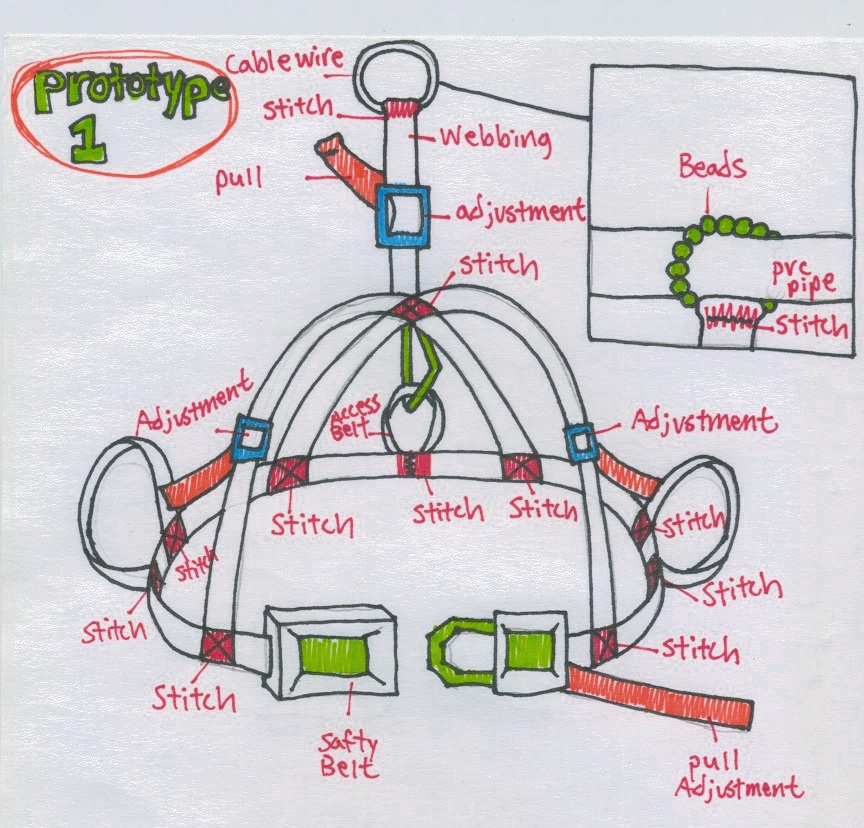 Prototype
1
Cable wire
stitch
Webbing
pull
adjustment
stitch
Beads
pvc
pipe
stitch
Adjustment
Access
Belt
Adjustment
Stitch
Stitch
Stitch
stitch
stitch
Stitch
Stitch
Stitch
Stitch
Safty
Belt
pull
Adjustment